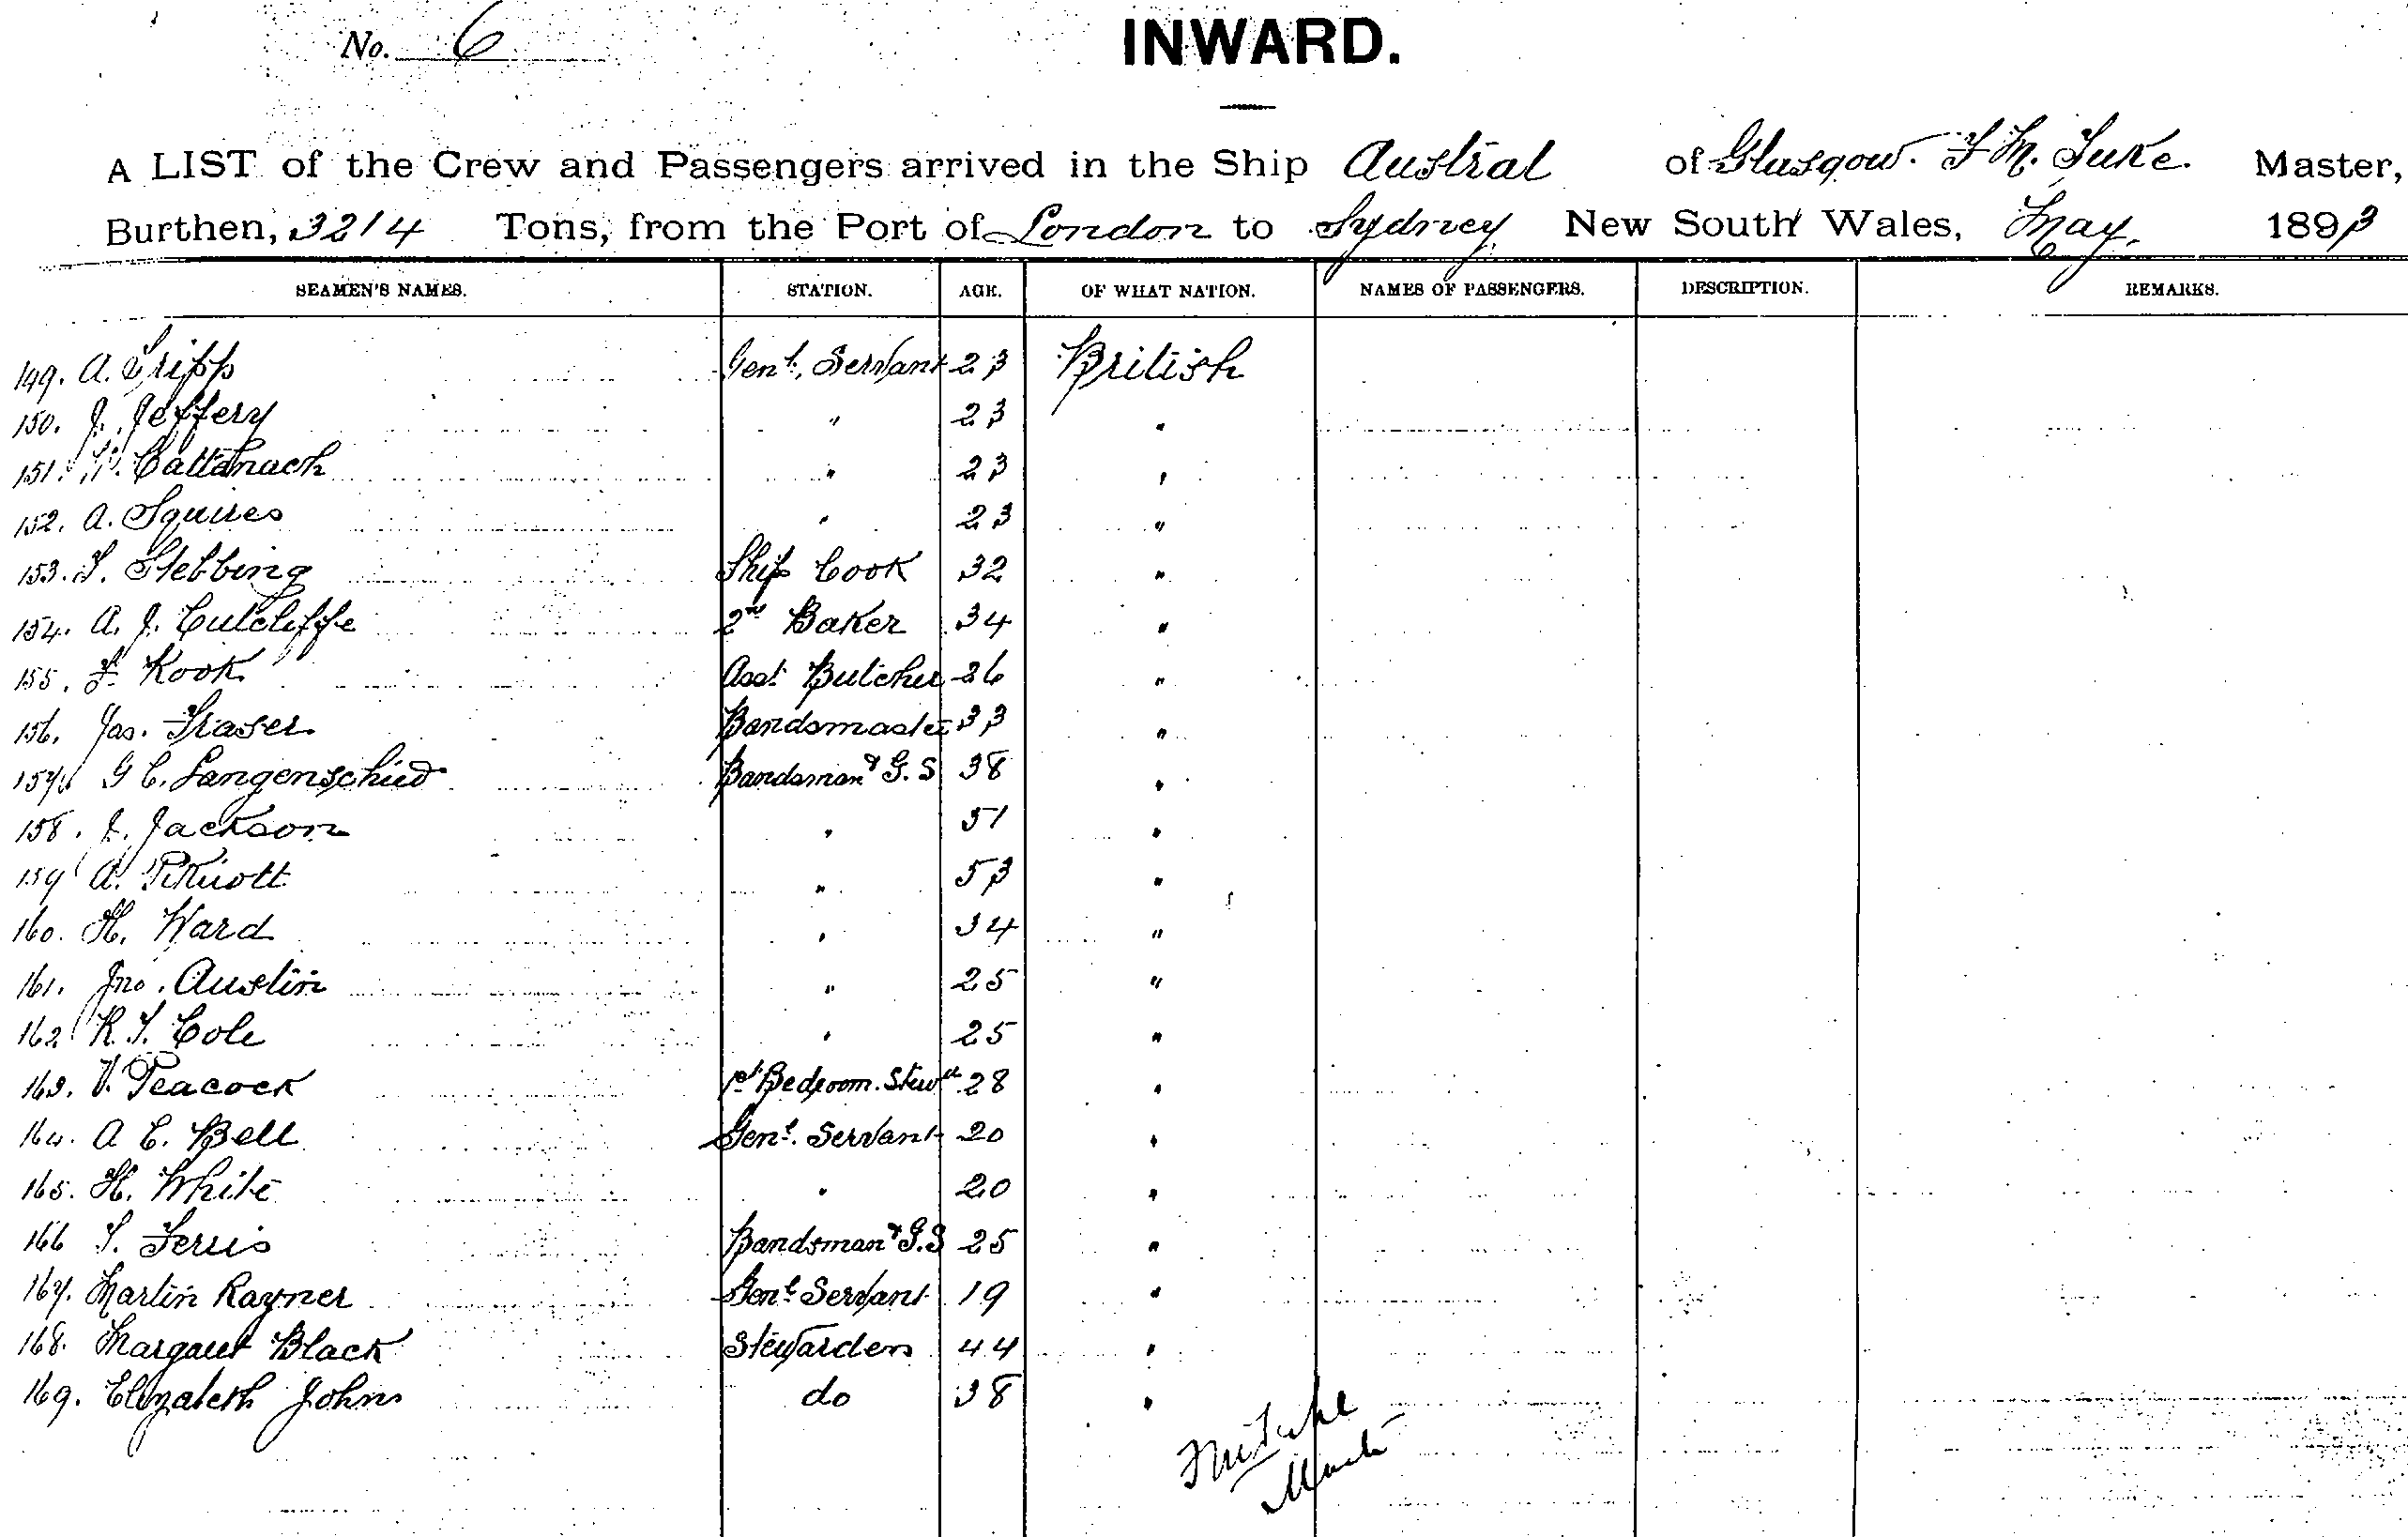 No. 6
INWARD.
A LIST of the Crew and Passengers arrived in the Ship Austral of Glasgow. F M. Tuke. Master,
Burthen, 3214 Tons, from the Port of London to Sydney New South Wales, May, 1893
SEAMEN'S NAMES. STATION. AGE. OF WHAT NATION. NAMES OF PASSENGERS. DESCRIPTION. REMARKS.
149. A. Tripp Genl. Servant 23 British
150. J. Jeffery " 23 "
151. Cattanach " 23 "
152. A. Squires " 23 "
153. S. Stebbing Ship Cook 32 "
154. A. J. Cutcliffe 2nd Baker 34 "
155. F. Kook Asst Butcher 26 "
156. Jas. Fraser Bandsmaster 33 "
157. G C. Langenschied Bandsman & G. S 38 "
158. J. Jackson " 51 "
159 A. " 53 "
160. H. Ward " 34 "
161. Jno. Austin " 25 "
162 R. T. Cole " 25 "
163. V. Peacock 1st Bedroom. Stewd 28 "
164. A E. Bell Genl. Servant 20 "
165. H. White " 20 "
166 S. Ferris Bandsman & G.S 25 "
167. Martin Rayner Genl Servant 19 "
168. Margaret Black Stewardess 44 "
169. Elizabeth Johns do 38 "